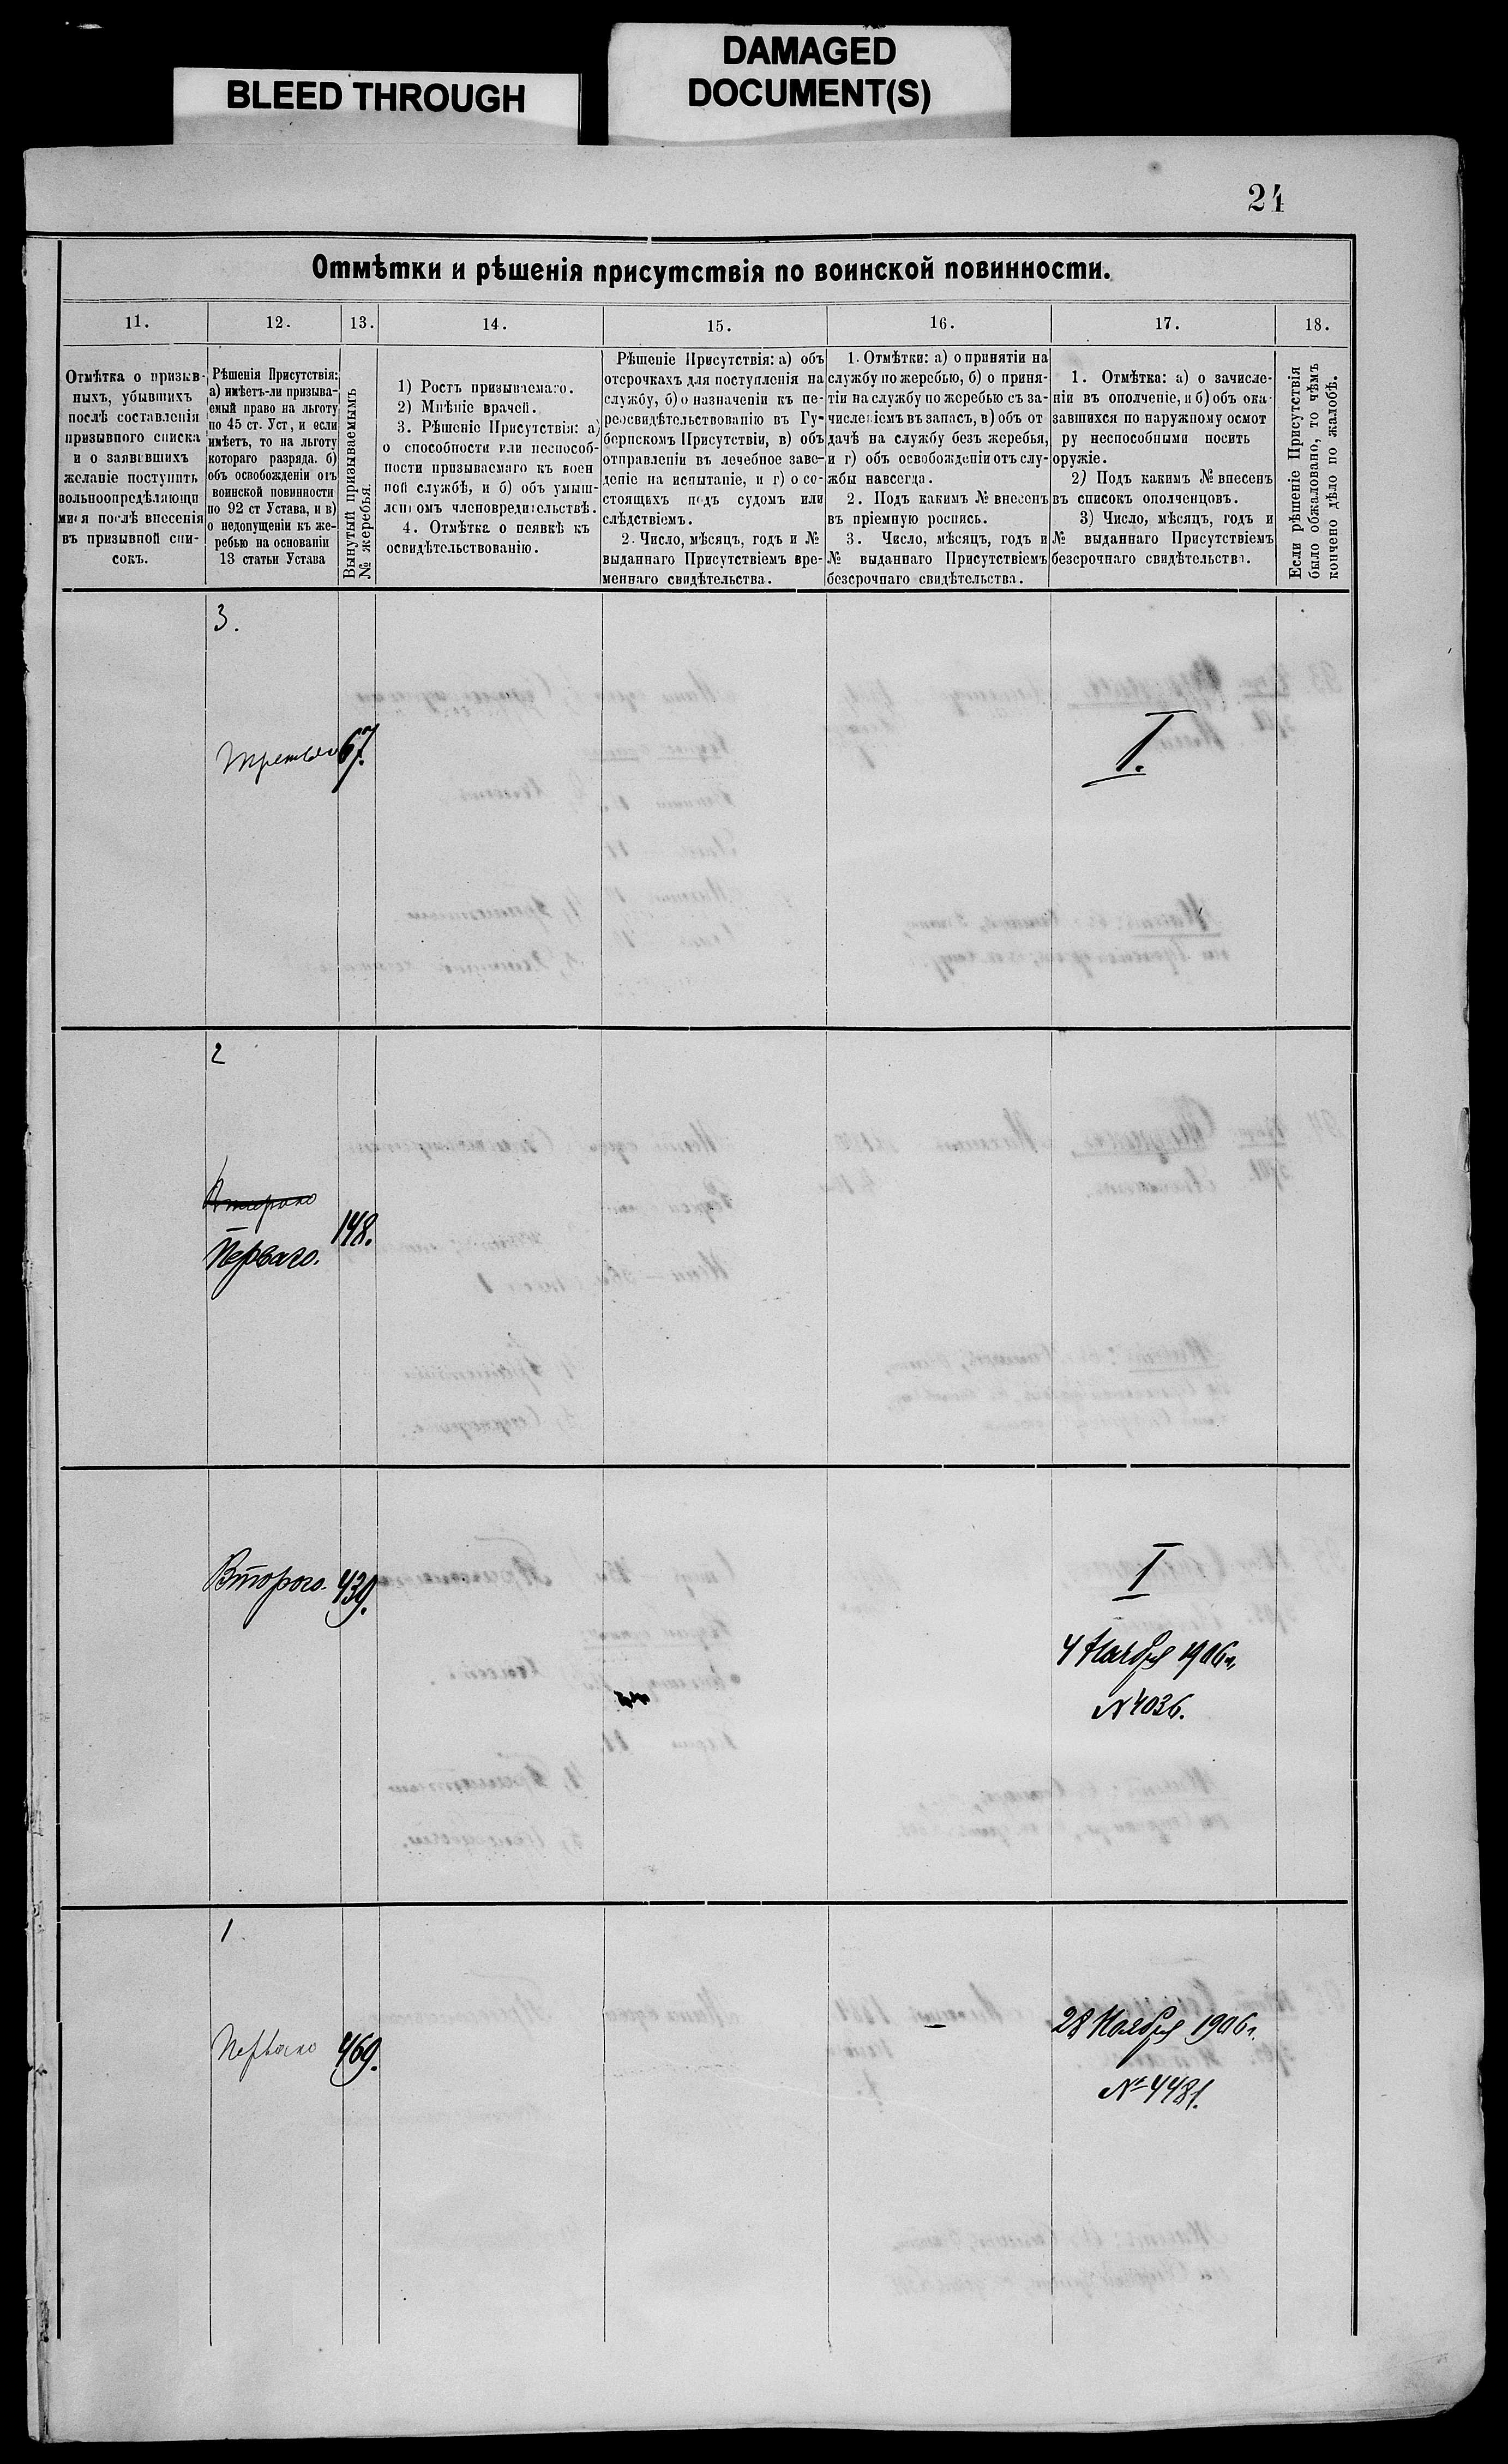 BLEED THROUGH
DAMAGED
DOCUMENT(S)
24
Отмѣтки и рѣшенія присутствія по воинской повинности.
11.
12.
13.
14.
15.
16.
17.
18.
Отмѣтка о призыв-
ныхъ, убывшихъ
послѣ составленія
призывного списка
и о заявившихъ
желаніе поступить
вольноопредѣляющи
мися послѣ внесенія
въ призывной спи-
сокъ.
Рѣшенія Присутствія:
а) имѣетъ-ли призыва-
емый право на льготу
по 45 ст. Уст, и если
имѣетъ, то на льготу
котораго разряда. б)
объ освобожденіи отъ
воинской повинности
по 92 ст Устава, и в)
о недопущеніи къ же-
ребью на основаніи
13 статьи Устава
Вынутый призываемымъ
№ жеребья.
1) Ростъ призываемаго.
2) Мнѣніе врачей.
3. Рѣшеніе Присутствія: а)
о способности или неспособ-
ности призываемаго къ воен
ной службѣ, и б) объ умыш-
леномъ членовредительствѣ.
4. Отмѣтка о неявкѣ къ
освидѣтельствованію.
Рѣшеніе Присутствія: а) объ
отсрочкахъ для поступленія на
службу, б) о назначеніи къ пе-
реосвидѣтельствованію въ Гу-
бернскомъ Присутствіи, в) объ
отправленіи въ лечебное заве-
деніе на испытаніе, и г) о со-
стоящихъ подъ судомъ или
слѣдствіемъ.
2. Число, мѣсяцъ, годъ и №
выданнаго Присутствіемъ вре-
меннаго свидѣтельства.
1. Отмѣтки: а) о принятіи на
службу по жеребью, б) о приня-
тіи на службу по жеребью съ за-
численіемъ въ запасъ, в) объ от
дачѣ на службу безъ жеребья,
и г) объ освобожденіи отъ слу-
жбы навсегда.
2. Подъ какимъ № внесенъ
въ пріемную роспись.
3. Число, мѣсяцъ, годъ и
№ выданнаго Присутствіемъ
безсрочнаго свидѣтельства.
1. Отмѣтка: а) о зачисле-
ніи въ ополченіе, и б) объ ока-
завшихся по наружному осмот
ру неспособными носить
оружіе.
2) Подъ какимъ № внесенъ
въ списокъ ополченцовъ.
3) Число, мѣсяцъ, годъ и
№ выданнаго Присутствіемъ
безсрочнаго свидѣтельства.
Если рѣшеніе Присутствія
было обжаловано, то чѣмъ
кончено дѣло по жалобѣ.
3.
третьяго
67.
I.
2
Второго
Перваго.
148.
Второго.
439.
I
4 Ноября 1906 г.
№ 4036.
1.
Перваго
469.
–
28 Ноября 1906 г.
№ 4481.